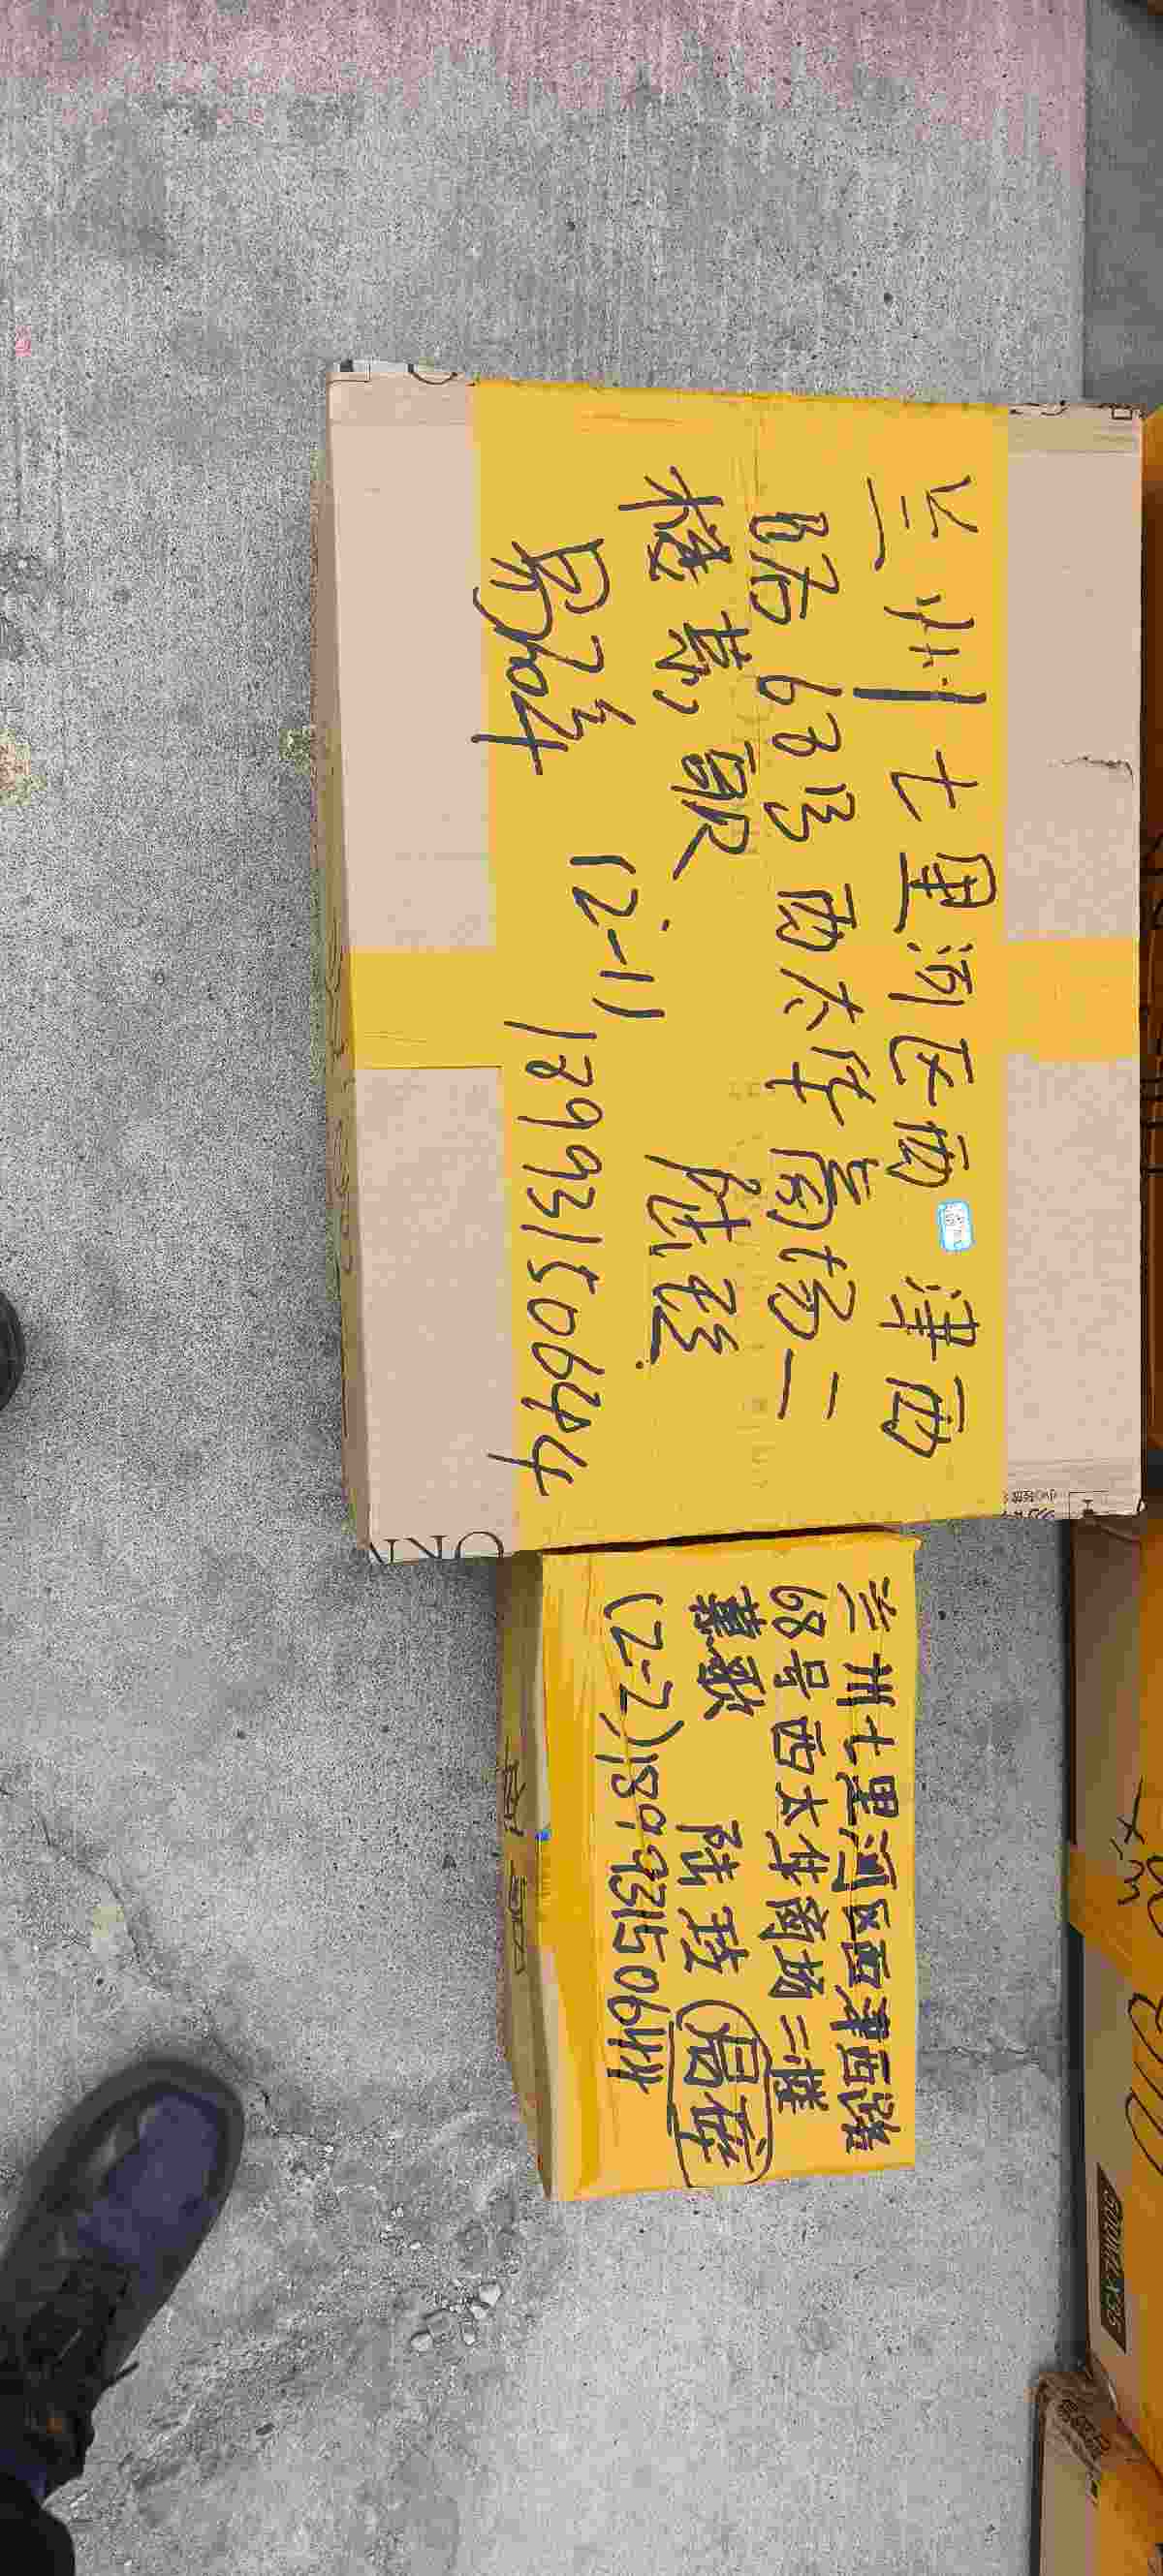 兰州七里河区西津西
路68号西太华商场二
楼慕歌
(2-1) 陆玲
易碎 18993150644
兰州七里河区西津西路
68号西太华商场二楼
慕歌 陆玲 (易碎)
(2-2) 18993150644